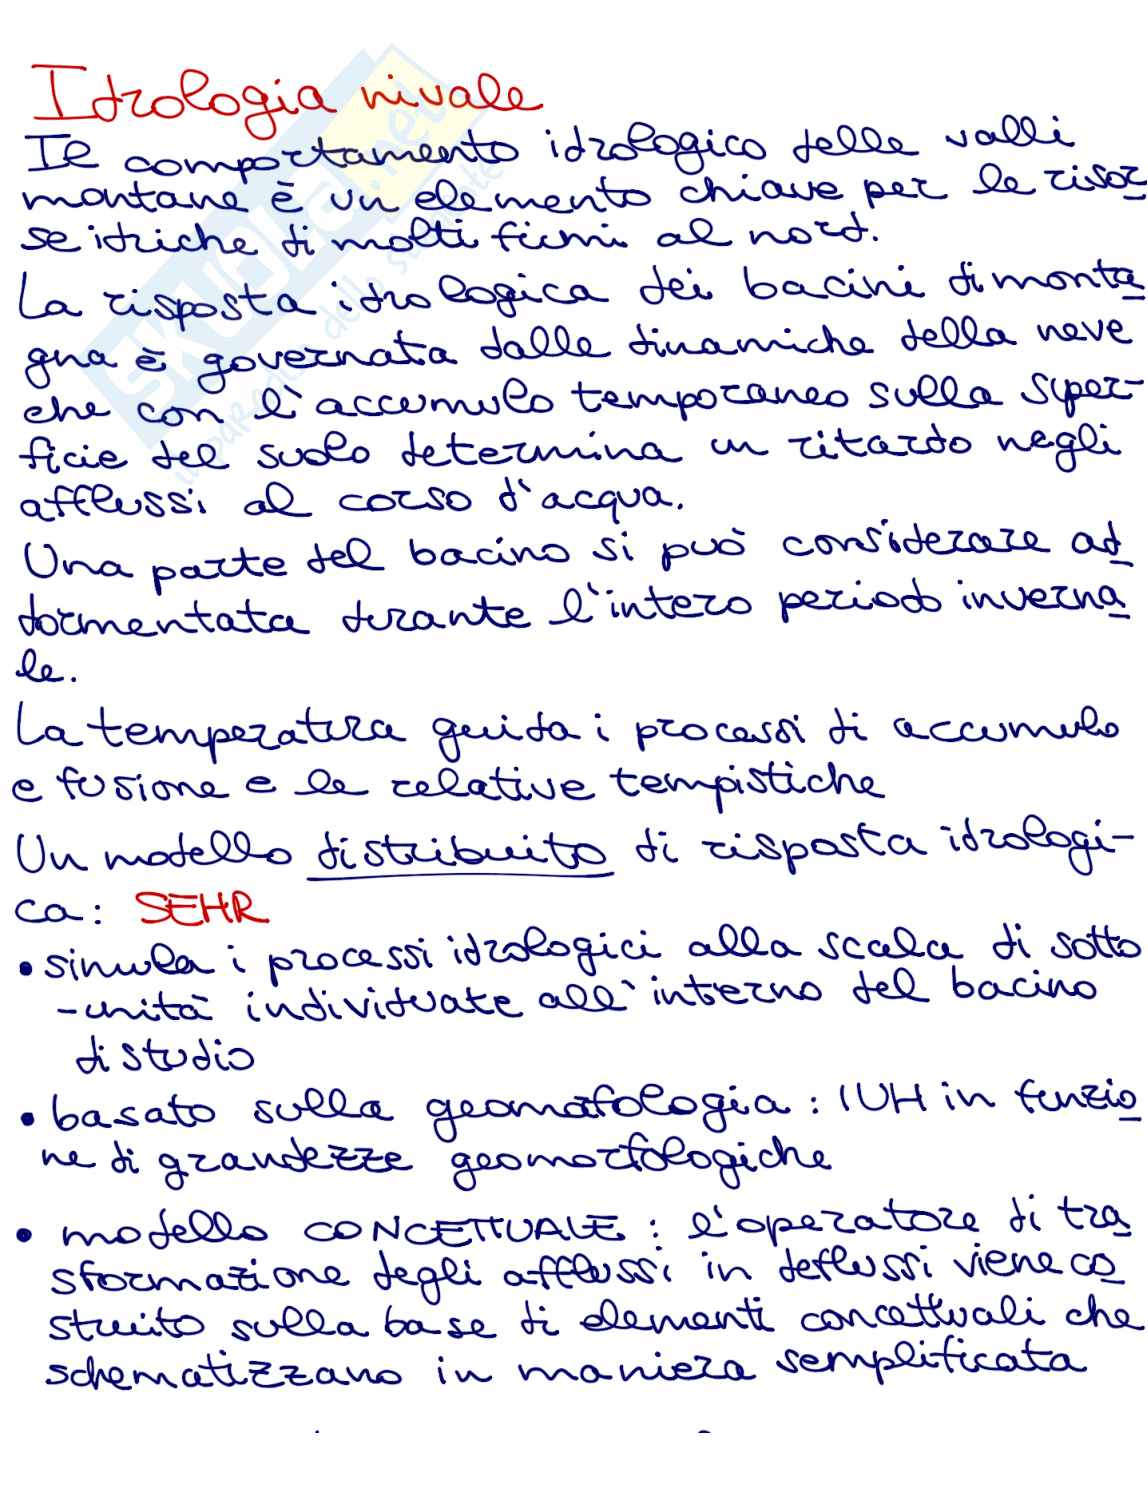 Idrologia nivale
Il comportamento idrologico delle valli
montane è un elemento chiave per le risor
se idriche di molti fiumi al nord.
La risposta idrologica dei bacini di monta
gna è governata dalle dinamiche della neve
che con l'accumulo temporaneo sulla super-
ficie del suolo determina un ritardo negli
afflussi al corso d'acqua.
Una parte del bacino si può considerare ad
dormentata durante l'intero periodo inverna
le.
La temperatura guida i processi di accumulo
e fusione e le relative tempistiche
Un modello distribuito di risposta idrologi-
ca: SEHR
• simula i processi idrologici alla scala di sotto
-unità individuate all'interno del bacino
di studio
• basato sulla geomorfologia: IUH in funzio
ne di grandezze geomorfologiche
• modello CONCETTUALE: l'operatore di tra
sformazione degli afflussi in deflussi viene co
struito sulla base di elementi concettuali che
schematizzano in maniera semplificata
SKUOLA.net